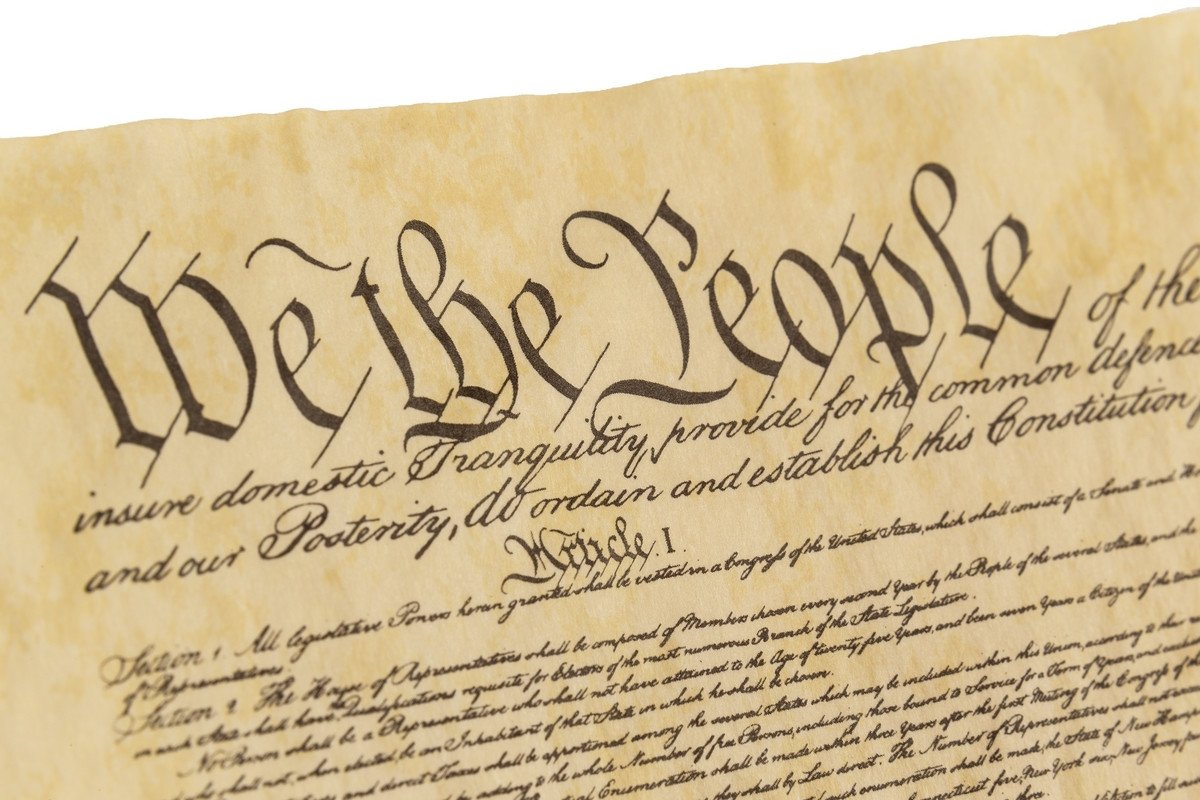 We the People of the
insure domestic Tranquility, provide for the common defence
and our Posterity, do ordain and establish this Constitution
Article. I.
Section 1. All legislative Powers herein granted shall be vested in a Congress of the United States, which shall consist of a Senate and
of Representatives.
Section 2. The House of Representatives shall be composed of Members chosen every second Year by the People of the several States, and the
in each State shall have the Qualifications requisite for Electors of the most numerous Branch of the State Legislature.
No Person shall be a Representative who shall not have attained to the Age of twenty five Years, and been seven Years a Citizen of the
who shall not, when elected, be an Inhabitant of that State in which he shall be chosen.
and direct Taxes shall be apportioned among the several States which may be included within this Union, according to their
by adding to the whole Number of free Persons, including those bound to Service for a Term of Years, and
Enumeration shall be made within three Years after the first Meeting of the Congress of the
they shall by Law direct. The Number of Representatives shall not
such enumeration shall be made, the State of New
Connecticut five, New York six, New Jersey